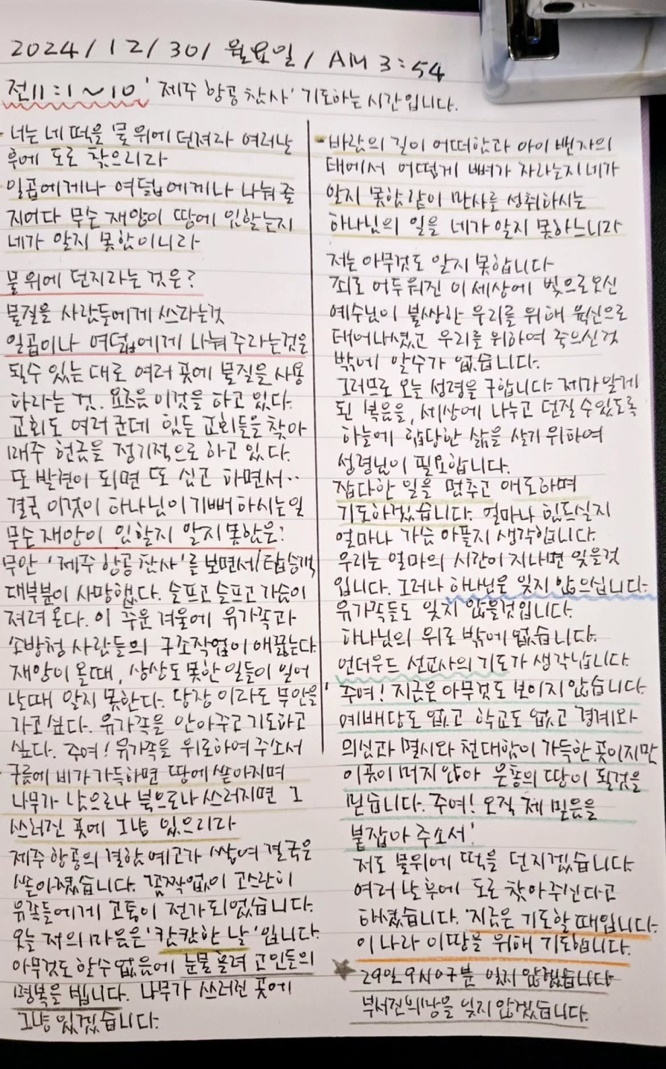 2024/12/30/ 월요일/ AM 3:54
전11:1~10 '제주 항공 참사' 기도하는 시간입니다.
너는 네 떡을 물 위에 던져라 여러날
후에 도로 찾으리라
일곱에게나 여덟에게나 나눠 줄
지어다 무슨 재앙이 땅에 임할는지
네가 알지 못함이니라
물위에 던지라는 것은?
물질을 사람들에게 쓰라는것
일곱이나 여덟에게 나눠주라는것은
될수 있는 대로 여러 곳에 물질을 사용
하라는 것. 요즈음 이것을 하고 있다.
교회도 여러 군데 힘든 교회들을 찾아
매주 헌금을 정기적으로 하고 있다.
또 발견이 되면 또 심고 하면서..
결국 이것이 하나님이 기뻐하시는일
무슨 재앙이 임할지 알지 못함은?
무안 '제주 항공 참사'를 보면서/탑승객
대부분이 사망했다. 슬프고 슬프고 가슴이
저려 온다. 이 추운 겨울에 유가족과
소방청 사람들의 구조작업이 애끓는다
재앙이 올때, 상상도 못한 일들이 일어
날때 알지 못한다. 당장 이라도 무안을
가고 싶다. 유가족을 안아주고 기도하고
싶다. 주여! 유가족을 위로하여 주소서
구름에 비가 가득하면 땅에 쏟아지며
나무가 남으로나 북으로나 쓰러지면 그
쓰러진 곳에 그냥 있으리라
제주 항공의 결함 예고가 쌓여 결국은
쏟아졌습니다. 꼼짝없이 고스란히
유족들에게 고통이 전가되었습니다.
오늘 저의 마음은 '캄캄한 날' 입니다.
아무것도 할수 없음에 눈물 흘려 고인들의
명복을 빕니다. 나무가 쓰러진 곳에
그냥 있겠습니다.
바람의 길이 어떠함과 아이 밴자의
태에서 어떻게 뼈가 자라는지 네가
알지 못함 같이 만사를 성취하시는
하나님의 일을 네가 알지 못하느니라
저는 아무것도 알지 못합니다
죄로 어두워진 이 세상에 빛으로 오신
예수님이 불쌍한 우리를 위해 육신으로
태어나셨고 우리를 위하여 죽으신것
밖에 알수가 없습니다.
그러므로 오늘 성령을 구합니다. 제가 알게
된 복음을, 세상에 나누고 던질 수 있도록
하늘에 합당한 삶을 살기 위하여
성령님이 필요합니다.
잡다한 일을 멈추고 애도하며
기도하겠습니다. 얼마나 힘드실지
얼마나 가슴 아플지 생각합니다.
우리는 얼마의 시간이 지나면 잊을것
입니다. 그러나 하나님은 잊지 않으십니다.
유가족들도 잊지 않을것입니다.
하나님의 위로 밖에 없습니다.
언더우드 선교사의 기도가 생각납니다.
'주여! 지금은 아무것도 보이지 않습니다.
예배당도 없고 학교도 없고 경계와
의심과 멸시와 천대함이 가득한 곳이지만
이곳이 머지않아 은총의 땅이 될것을
믿습니다. 주여! 오직 제 믿음을
붙잡아 주소서!
저도 물위에 떡을 던지겠습니다.
여러 날 후에 도로 찾아주신다고
하셨습니다. 지금은 기도할 때입니다.
이 나라 이땅을 위해 기도합니다.
29일 9시 07분 잊지 않겠습니다
부서진 비상을 잊지 않겠습니다.